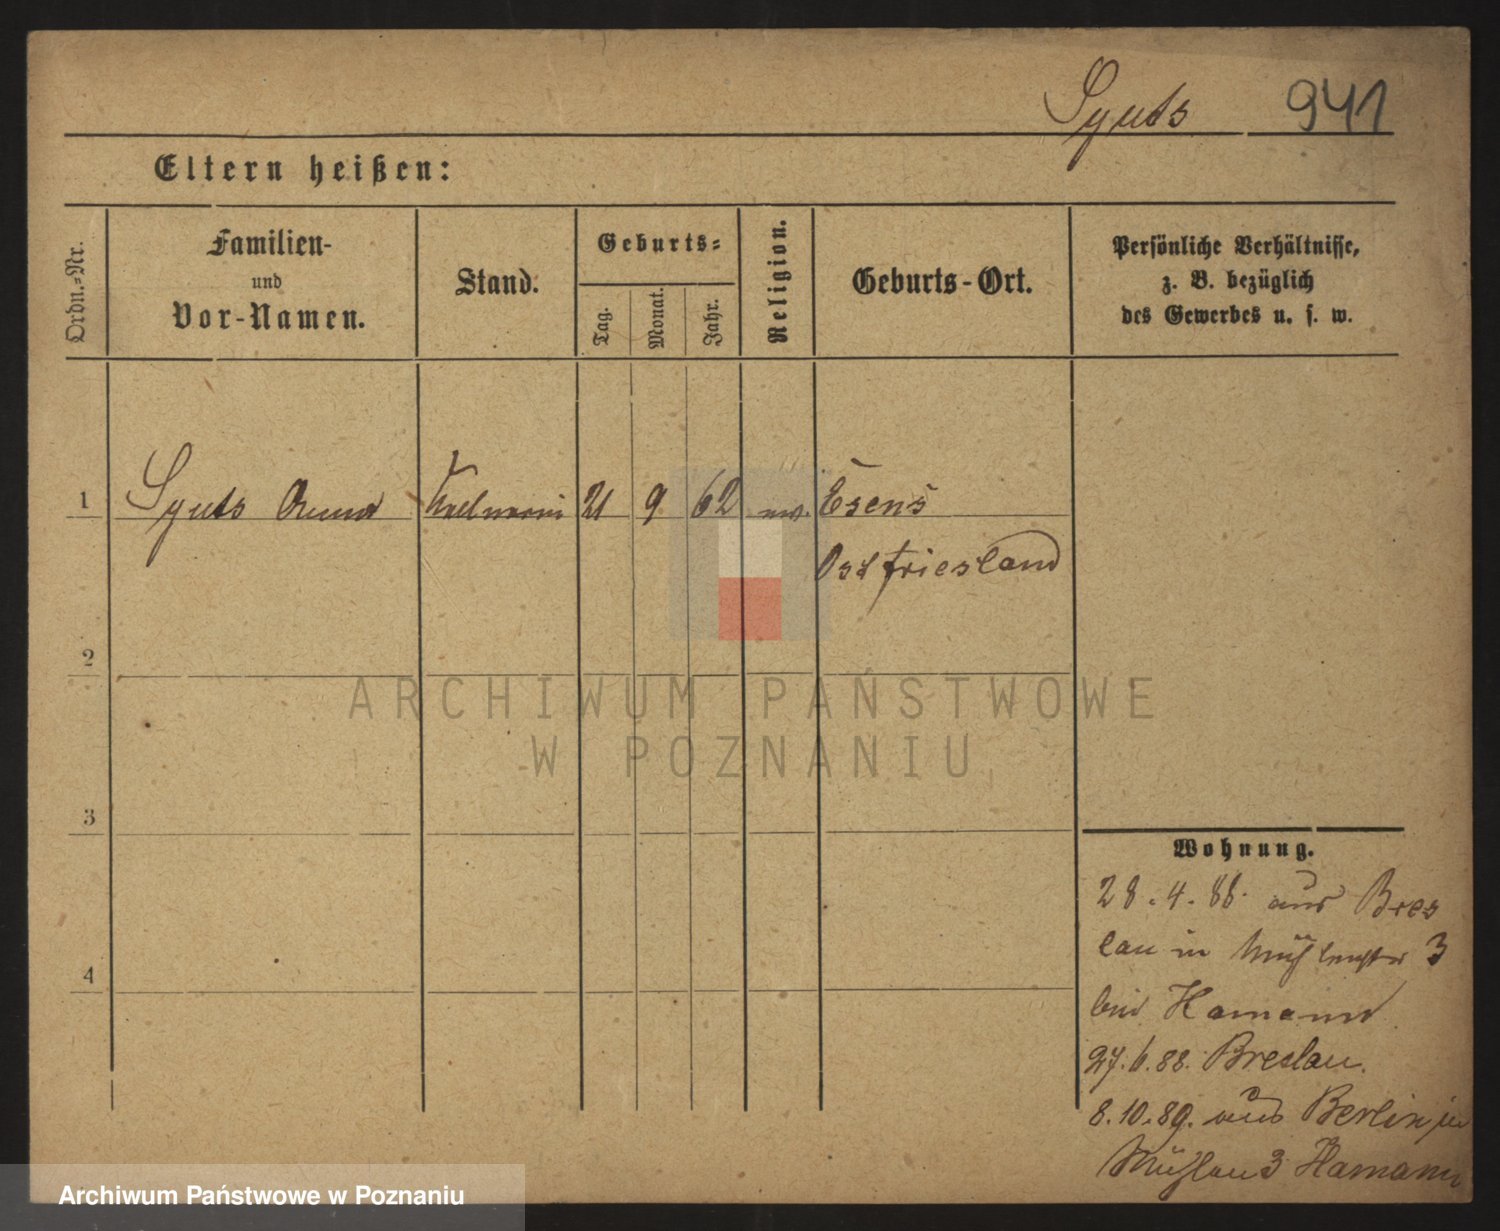 Syuts 941
Eltern heißen:
Ordn.-Nr.
Familien-
und
Vor-Namen.
Stand.
Geburts-
Tag.
Monat.
Jahr.
Religion.
Geburts-Ort.
Persönliche Verhältnisse,
z. B. bezüglich
des Gewerbes u. s. w.
1 Syuts 21 9 62 Esens
Ostfriesland
2
3
4
Wohnung.
28.4.88. aus Bres
lau in Mühlenstr 3
bei Hamann
27.6.88. Breslau.
8.10.89. aus Berlin in
Mühlen 3 Hamann
ARCHIWUM PAŃSTWOWE
W POZNANIU
Archiwum Państwowe w Poznaniu